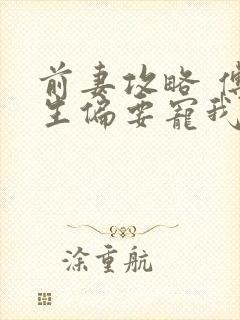 前妻攻略 傅
生偏要宠我
涂重航